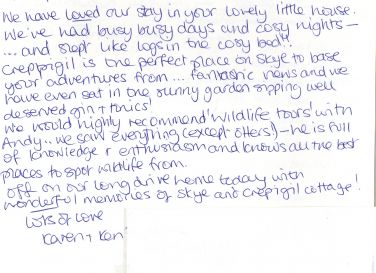 We have loved our stay in your lovely little house.
We've had busy busy days and cosy nights –
... and slept like logs in the cosy bed!!
Creppigil is the perfect place on Skye to base
your adventures from... fantastic news and we
have even sat in the sunny garden sipping well
deserved gin + tonics!
We would highly recommend 'Wildlife Tours' with
Andy... we saw everything (except otters!) – he is full
of knowledge + enthusiasm and knows all the best
places to spot wildlife from.
Off on our long drive home today with
wonderful memories of Skye and Crepigil cottage!
Lots of love
Karen + Ken